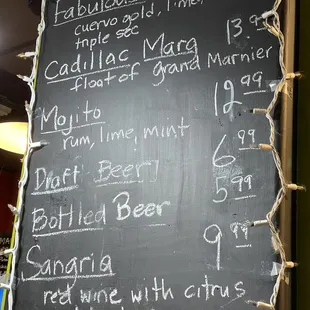 Fabulous
cuervo gold, lime,
triple sec
Cadillac Marg 13.99
float of grand Marnier
Mojito 12 99
rum, lime, mint
Draft Beer 6 99
Bottled Beer 5 99
Sangria 9 99
red wine with citrus